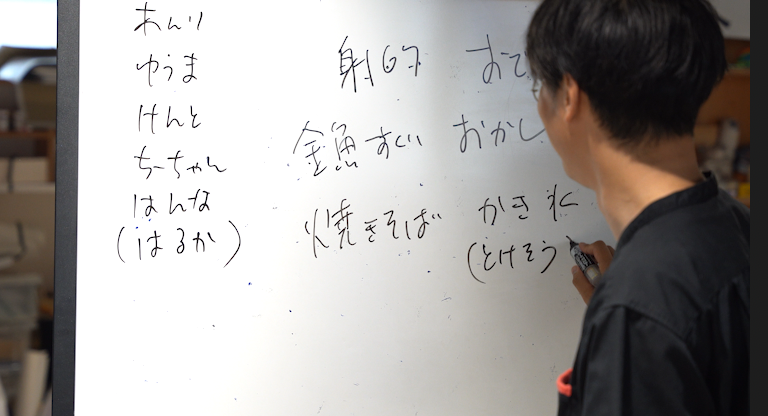 あんり
ゆうま
けんと
ちーちゃん
はんな
(はるか)
射的
金魚すくい おかし
焼きそば かき氷
(とけそう